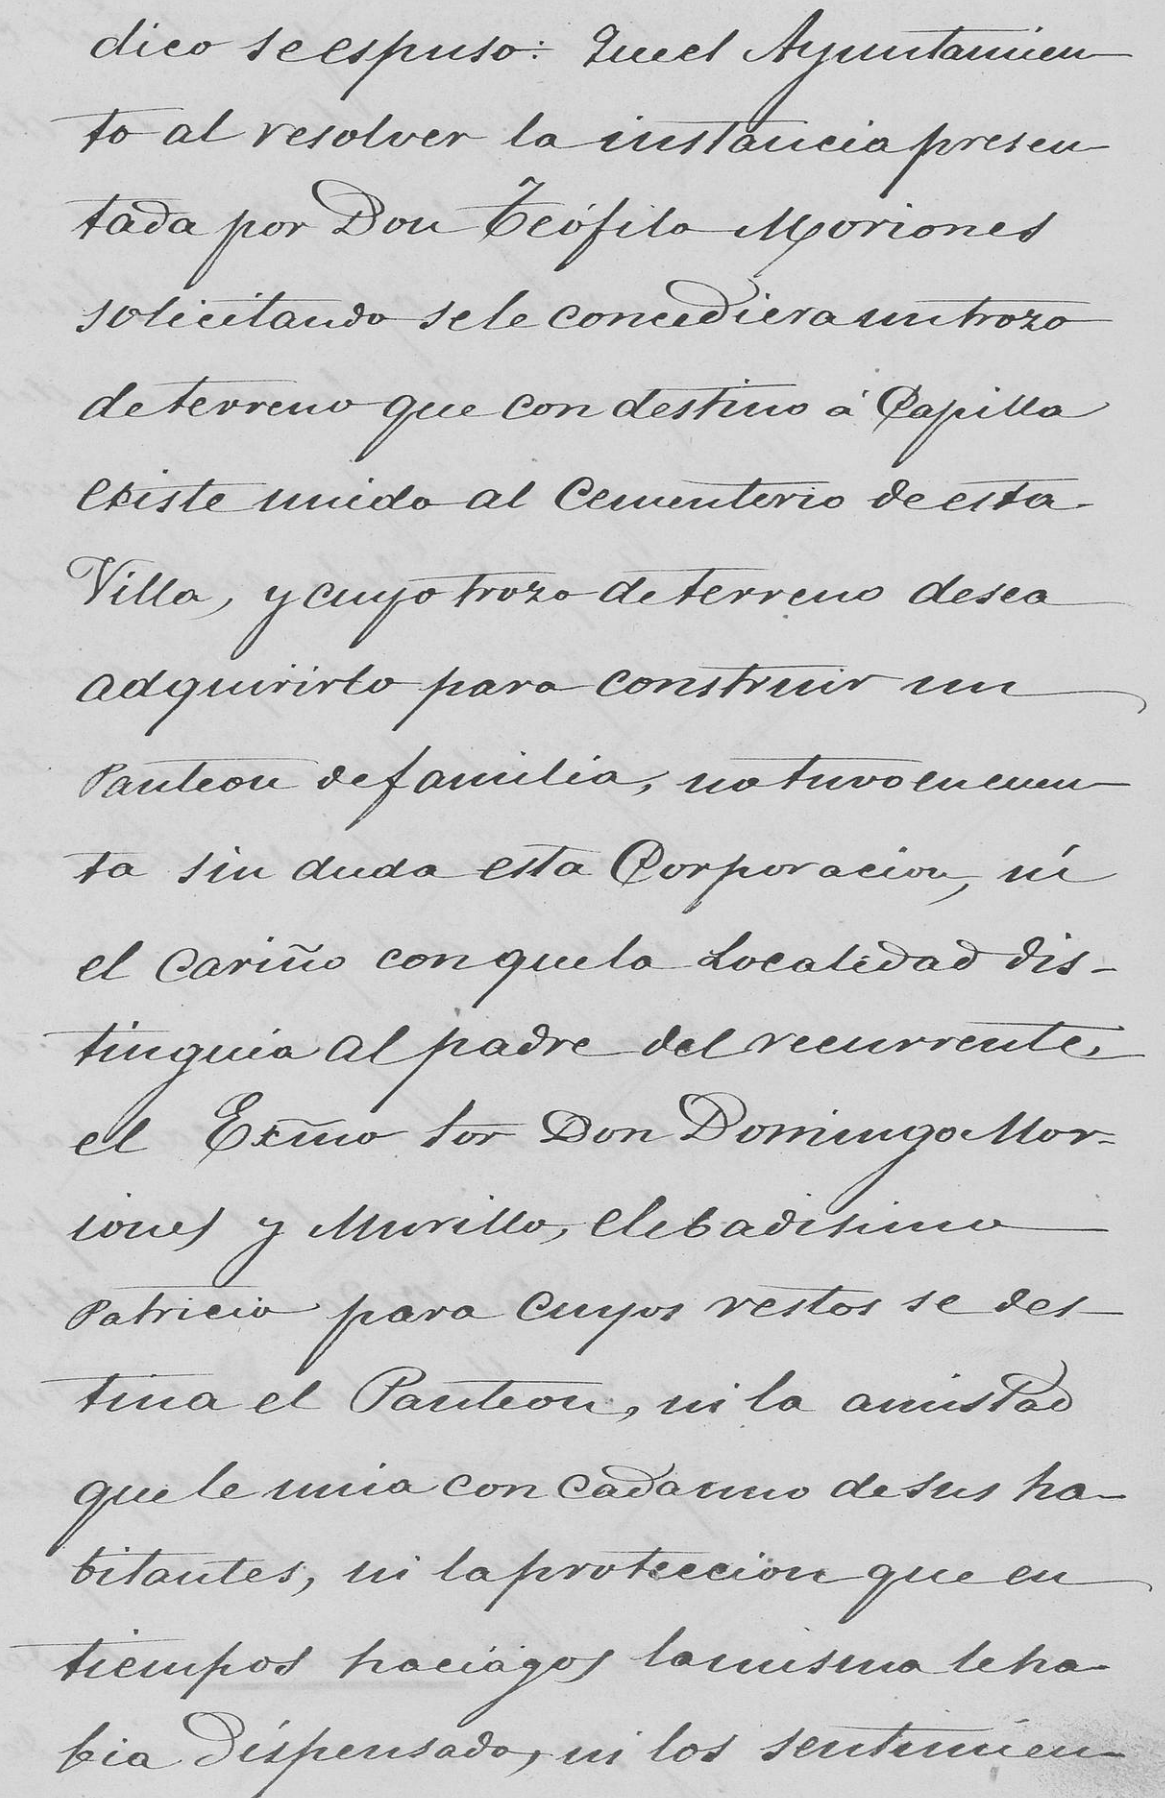 dico se espuso: Que el Ayuntamien-
to al resolver la instancia presen-
tada por Don Teófilo Moriones
solicitando se le concediera un trozo
de terreno que con destino á Capilla
existe unido al Cementerio de esta
Villa, y cuyo trozo de terreno desea
adquirirlo para construir un
Panteon de familia, no tuvo en cuen-
ta sin duda esta Corporacion, ní
el cariño con que la Localidad dis-
tinguia al padre del recurrente,
el Excm̃o Sor Don Domingo Mor-
iones y Murillo, elebadisimo
Patricio para cuyos restos se des-
tina el Panteon, ni la amistad
que le unia con cada uno de sus ha-
bitantes, ni la proteccion que en
tiempos haciágos la misma le ha-
bia dispensado, ni los sentimien-